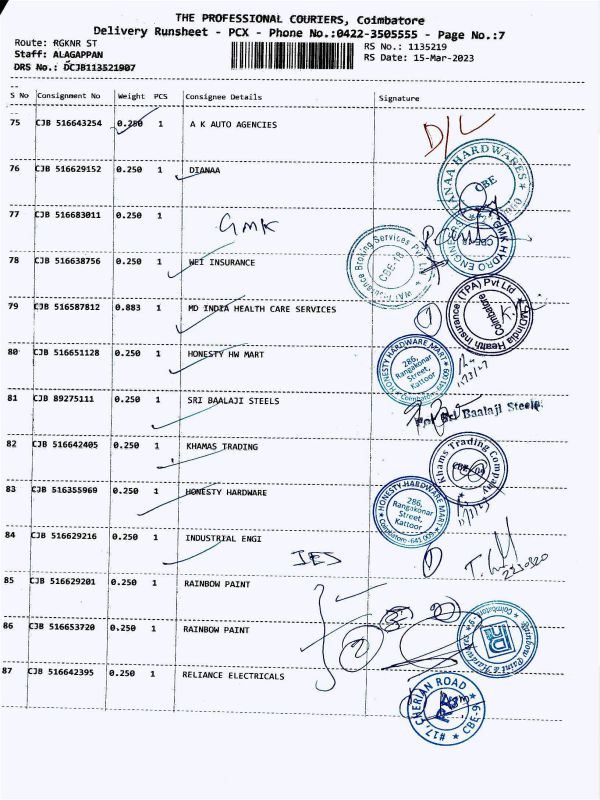 THE PROFESSIONAL COURIERS, Coimbatore
Delivery Runsheet - PCX - Phone No.:0422-3505555 - Page No.:7
Route: RGKNR ST
RS No.: 1135219
Staff: ALAGAPPAN
RS Date: 15-Mar-2023
DRS No.: DCJB113521907
S No Consignment No Weight PCS Consignee Details Signature
75 CJB 516643254 0.250 1 A K AUTO AGENCIES
D/L
76 CJB 516629152 0.250 1 DIANAA
DIANAA HARDWARES
CBE
77 CJB 516683011 0.250 1 GMK
GMK HYDRO ENGINEERS
CBE-18
78 CJB 516638756 0.250 1 WEI INSURANCE
Insurance Broking Services Pvt
CBE-18
79 CJB 516587812 0.883 1 MD INDIA HEALTH CARE SERVICES
MDIndia Health Insurance (TPA) Pvt Ltd
Coimbatore
80 CJB 516651128 0.250 1 HONESTY HW MART
HONESTY HARDWARE MART
286,
Rangakonar
Street,
Kattoor
81 CJB 89275111 0.250 1 SRI BAALAJI STEELS
For Sri Baalaji Steels
82 CJB 516642405 0.250 1 KHAMAS TRADING
Khams Trading Company
83 CJB 516355969 0.250 1 HONESTY HARDWARE
HONESTY HARDWARE MART
286,
Rangakonar
Street,
Kattoor
Coimbatore - 641 009
84 CJB 516629216 0.250 1 INDUSTRIAL ENGI
IES
85 CJB 516629201 0.250 1 RAINBOW PAINT
86 CJB 516653720 0.250 1 RAINBOW PAINT
Rainbow Paint & Hardwares
Coimbatore
87 CJB 516642395 0.250 1 RELIANCE ELECTRICALS
#17, CHERIAN ROAD
CBE-9